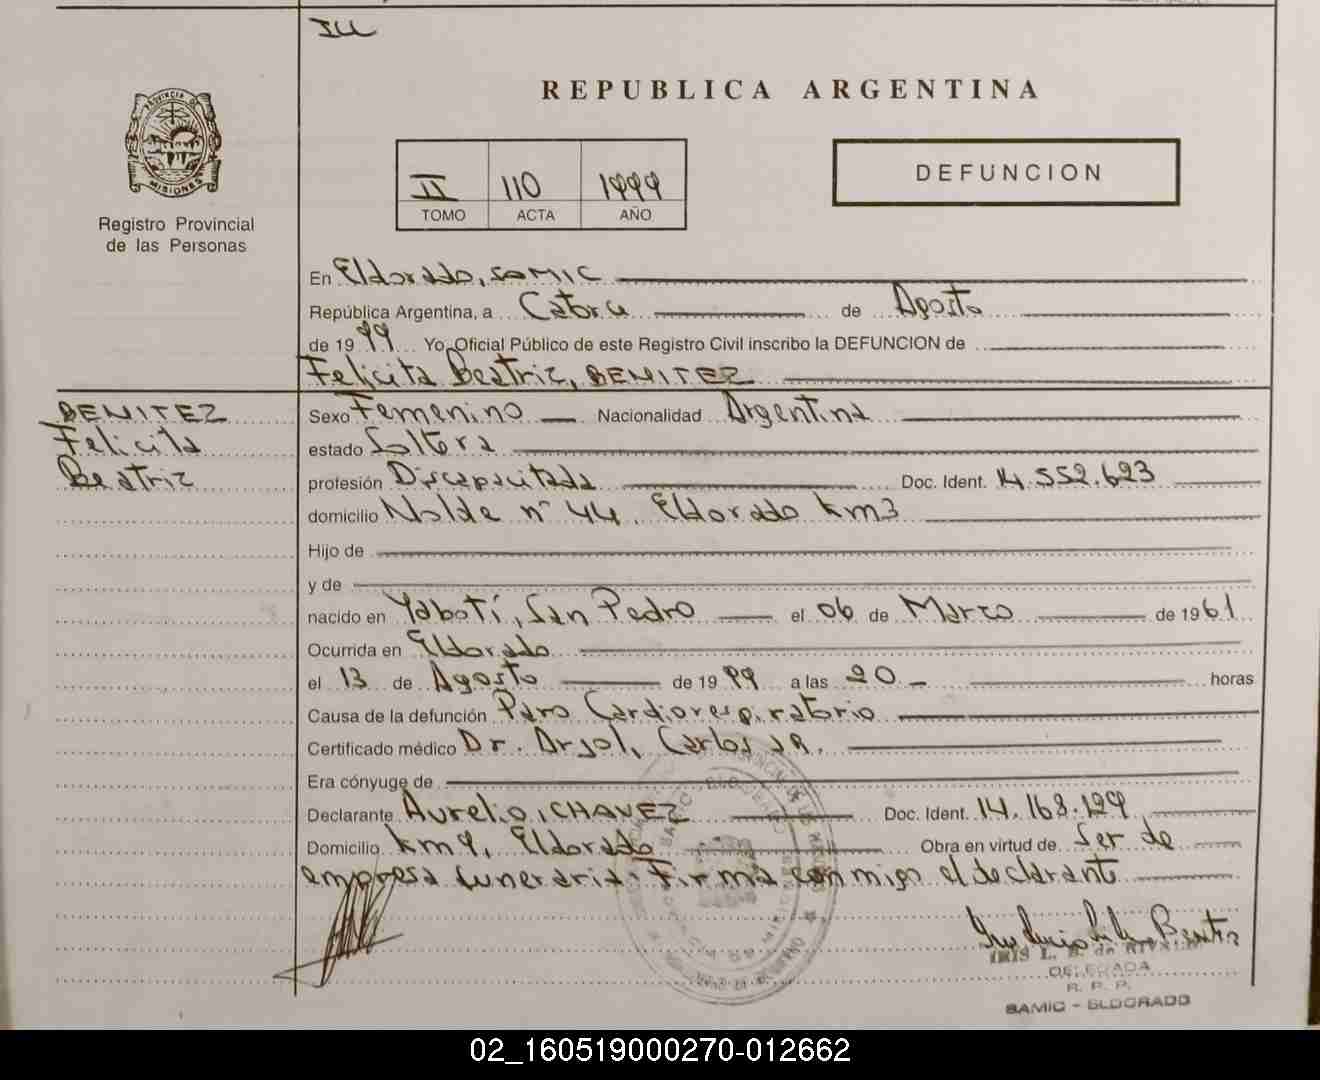 REPUBLICA ARGENTINA
PROVINCIA DE
MISIONES
Registro Provincial
de las Personas
II 110 1999
TOMO ACTA AÑO
DEFUNCION
En Eldorado, SAMIC
República Argentina, a Catorce de Agosto
de 1999 Yo, Oficial Público de este Registro Civil inscribo la DEFUNCION de
Felicita Beatriz, BENITEZ
BENITEZ
Felicita
Beatriz
Sexo Femenino Nacionalidad Argentina
estado Soltera
profesión Discapacitada Doc. Ident. 14.552.623
domicilio Nolde n° 44. Eldorado km3
Hijo de
y de
nacido en Yabotí, San Pedro el 06 de Marzo de 1961
Ocurrida en Eldorado
el 13 de Agosto de 1999 a las 20 horas
Causa de la defunción Paro Cardiorespiratorio
Certificado médico Dr. Arsol, Carlos
Era cónyuge de
Declarante Aurelio, CHAVEZ Doc. Ident. 14.168.129
Domicilio km9, Eldorado Obra en virtud de Ser de
empresa funeraria. Firma conmigo el declarante
IRIS L. B. de
DELEGADA
R. P. P.
SAMIC - ELDORADO
02_160519000270-012662